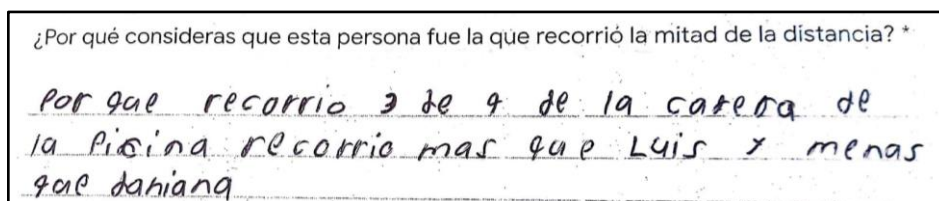 ¿Por qué consideras que esta persona fue la que recorrió la mitad de la distancia? *
Por que recorrio 3 de 9 de la carera de
la Picina recorrio mas que Luis y menas
que daniana